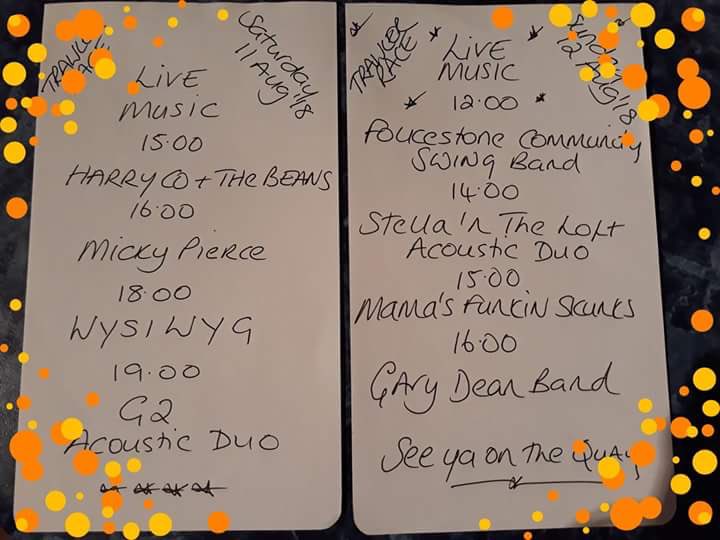 TRAWLER
RACE
Saturday
11 Aug '18
LIVE
MUSIC
15.00
HARRY CO + THE BEANS
16.00
MICKY PIERCE
18.00
WYSIWYG
19.00
G2
ACOUSTIC DUO
TRAWLER
RACE
12 Aug '18
LIVE
MUSIC
12.00
FOLKESTONE COMMUNITY
SWING BAND
14.00
STELLA 'N THE LOFT
ACOUSTIC DUO
15.00
MAMA'S FUNKIN SKUNKS
16.00
GARY DEAN BAND
See ya on the QUAY